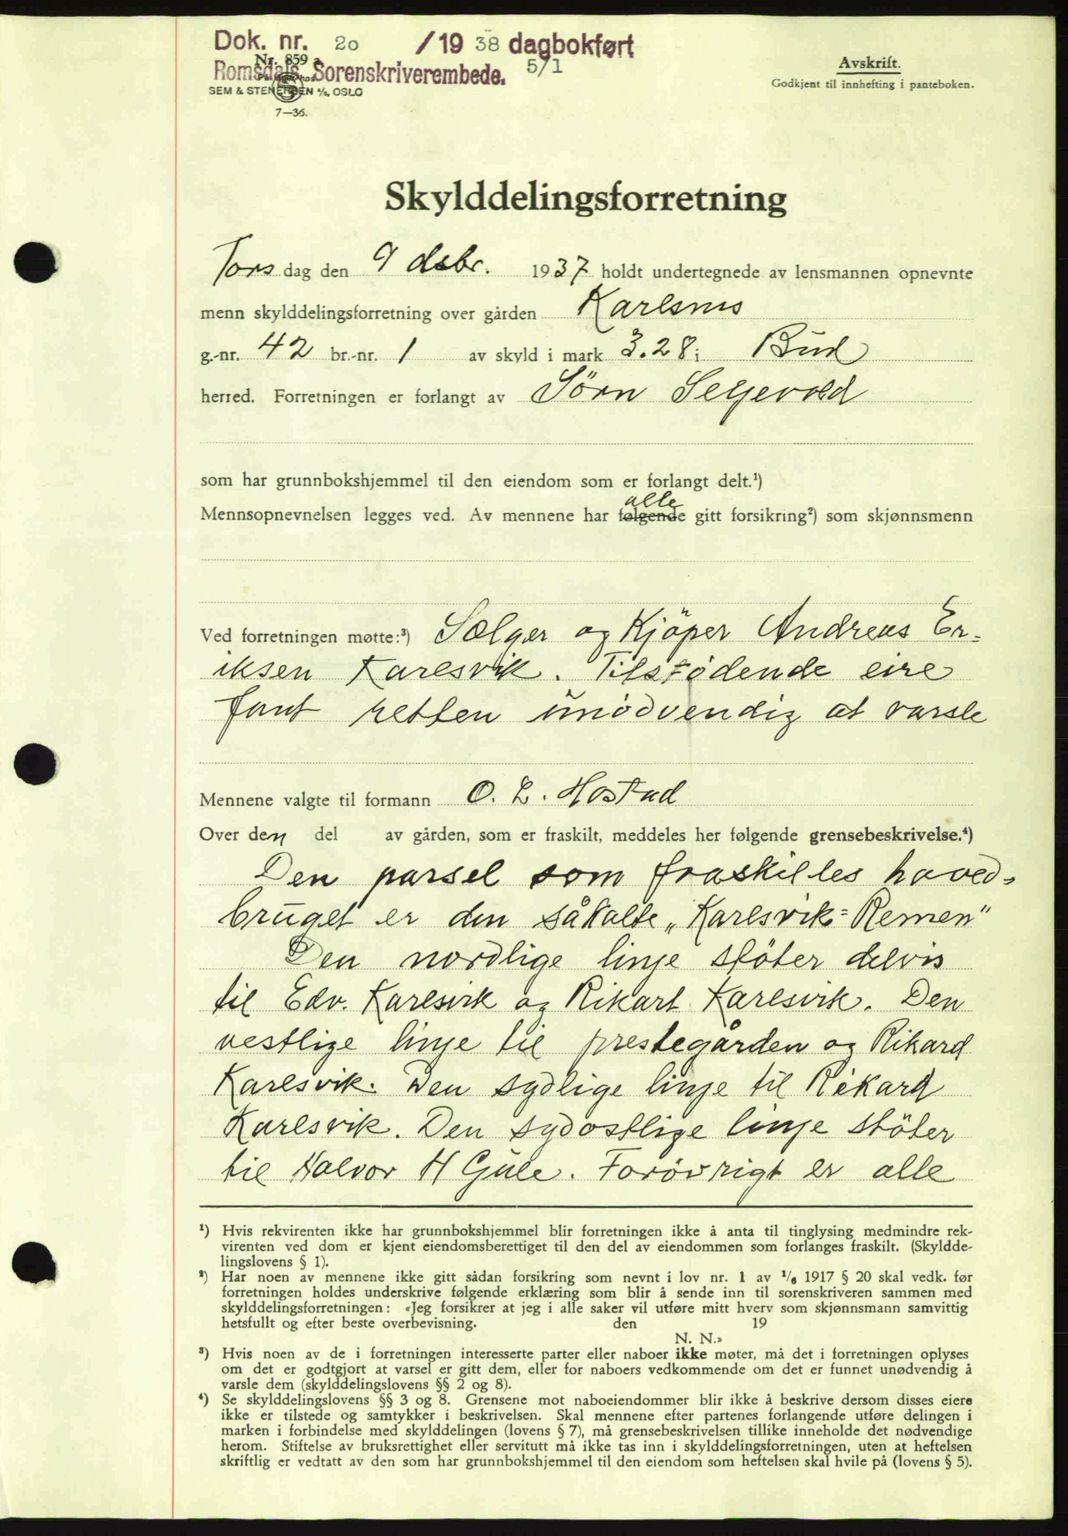 Dok. nr. 20 /1938 dagbokført
Nr. 859 a
Romsdals Sorenskriverembede. 5/1
SEM & STENERSEN A/S, OSLO
7—36.
Avskrift.
Godkjent til innhefting i panteboken.
Skylddelingsforretning
Tors dag den 9 dsbr. 1937 holdt undertegnede av lensmannen opnevnte
menn skylddelingsforretning over gården Karlsnes
g.-nr. 42 br.-nr. 1 av skyld i mark 3.28 i Bud
herred. Forretningen er forlangt av Sörn Segevold
som har grunnbokshjemmel til den eiendom som er forlangt delt.¹)
alle
Mennsopnevnelsen legges ved. Av mennene har følgende gitt forsikring²) som skjønnsmenn
Ved forretningen møtte:³) Sælger og Kjöper Andreas Er=
iksen Karesvik. Tilstødende eire
fant retten unödvendig at varsle
Mennene valgte til formann O. L. Hostad
Over den del av gården, som er fraskilt, meddeles her følgende grensebeskrivelse.⁴)
Den parsel som fraskilles hoved=
bruget er den såkalte „Karlsvik=Remen"
Den nordlige linje stöter delvis
til Edv. Karesvik og Rikart Karesvik. Den
vestlige linje til prestegården og Rikard
Karesvik. Den sydlige linje til Rikard
Karlsvik. Den sydostlige linje stöter
til Halvor H Gule. Forövrigt er alle
¹) Hvis rekvirenten ikke har grunnbokshjemmel blir forretningen ikke å anta til tinglysing medmindre rek-
virenten ved dom er kjent eiendomsberettiget til den del av eiendommen som forlanges fraskilt. (Skyldde-
lingslovens § 1).
²) Har noen av mennene ikke gitt sådan forsikring som nevnt i lov nr. 1 av 1/6 1917 § 20 skal vedk. før
forretningen holdes underskrive følgende erklæring som blir å sende inn til sorenskriveren sammen med
skylddelingsforretningen: «Jeg forsikrer at jeg i alle saker vil utføre mitt hverv som skjønnsmann samvittig
hetsfullt og efter beste overbevisning. den 19
N. N.»
³) Hvis noen av de i forretningen interesserte parter eller naboer ikke møter, må det i forretningen oplyses
om det er godtgjort at varsel er gitt dem, eller for naboers vedkommende om det er funnet unødvendig å
varsle dem (skylddelingslovens §§ 2 og 8).
⁴) Se skylddelingslovens §§ 3 og 8. Grensene mot naboeiendommer blir ikke å beskrive dersom disses eiere
ikke er tilstede og samtykker i beskrivelsen. Skal mennene efter partenes forlangende utføre delingen i
marken i forbindelse med skylddelingen (lovens § 7), må grensebeskrivelsen tillike inneholde det nødvendige
herom. Stiftelse av bruksrettighet eller servitutt må ikke tas inn i skylddelingsforretningen, uten at heftelsen
skriftlig er vedtatt av den som har grunnbokshjemmel til den eiendom som heftelsen skal hvile på (lovens § 5).